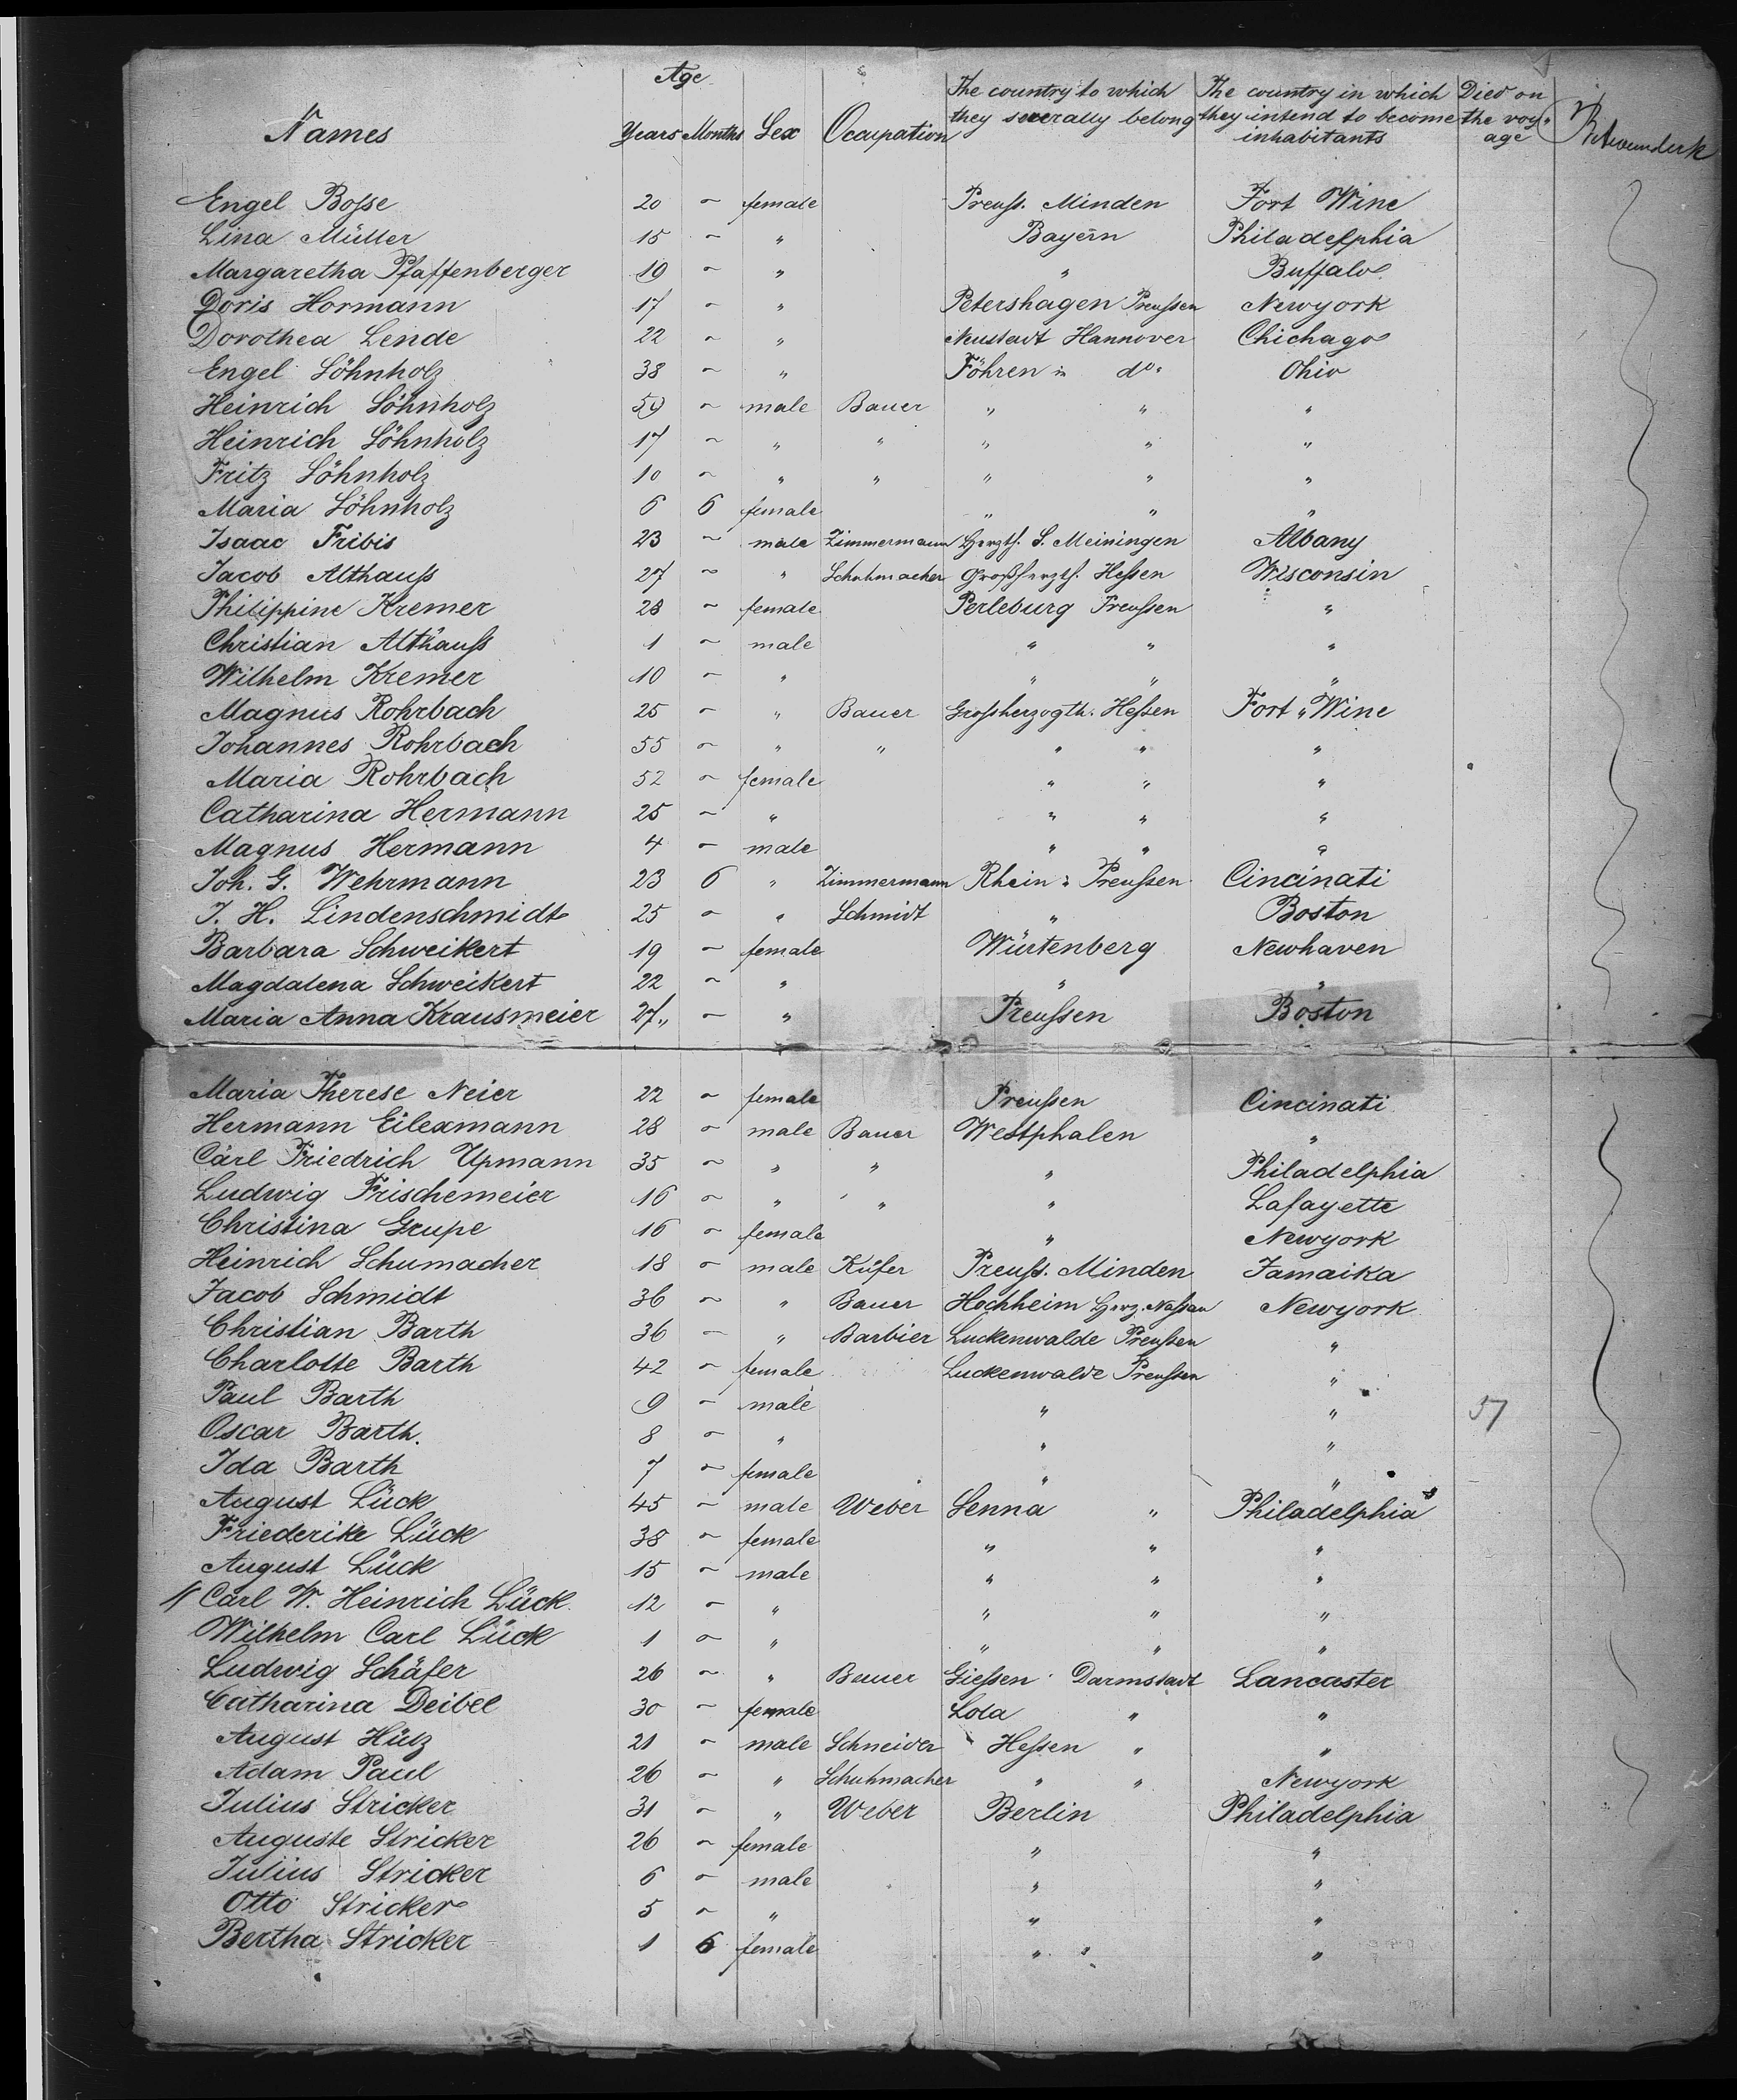 Age
Names Years Months Sex Occupation The country to which they severally belong The country in which they intend to become inhabitants Died on the voyage
Engel Bosse 20 ~ female Preuss. Minden Fort Wine
Lina Müller 15 ~ " Bayern Philadelphia
Margaretha Pfaffenberger 19 ~ " " Buffalo
Doris Hormann 17 ~ " Petershagen Preussen Newyork
Dorothea Lende 22 ~ " Neustadt Hannover Chichago
Engel Söhnholz 38 ~ " Föhren in do. Ohio
Heinrich Söhnholz 59 ~ male Bauer " " "
Heinrich Söhnholz 17 ~ " " " " "
Fritz Söhnholz 10 ~ " " " " "
Maria Söhnholz 6 6 female " " "
Isaac Fribis 23 ~ male Zimmermann Herzth. S. Meiningen Albany
Jacob Althauss 27 ~ " Schuhmacher Großherzth. Hessen Wisconsin
Philippine Kremer 28 ~ female Perleburg Preussen "
Christian Althauss 1 ~ male " " "
Wilhelm Kremer 10 ~ " " " "
Magnus Rohrbach 25 ~ " Bauer Grossherzogth. Hessen Fort " Wine
Johannes Rohrbach 55 ~ " " " " "
Maria Rohrbach 52 ~ female " " "
Catharina Hermann 25 ~ " " " "
Magnus Hermann 4 ~ male " " "
Joh. G. Wehrmann 23 6 " Zimmermann Rhein " Preussen Cincinati
J. H. Lindenschmidt 25 ~ " Schmidt " Boston
Barbara Schweikert 19 ~ female Würtenberg Newhaven
Magdalena Schweikert 22 ~ " " "
Maria Anna Krausmeier 27 " ~ " Preussen Boston
Maria Therese Neier 22 ~ female Preussen Cincinati
Hermann Eilexmann 28 ~ male Bauer Westphalen "
Carl Friedrich Upmann 35 ~ " " " Philadelphia
Ludwig Frischemeier 16 ~ " " " Lafayette
Christina Grupe 16 ~ female " Newyork
Heinrich Schumacher 18 ~ male Küfer Preuss. Minden Jamaika
Jacob Schmidt 36 ~ " Bauer Hochheim Herz. Nassau Newyork
Christian Barth 36 ~ " Barbier Luckenwalde Preussen "
Charlotte Barth 42 ~ female Luckenwalde Preussen "
Paul Barth 9 ~ male " " 57
Oscar Barth. 8 ~ " " "
Ida Barth 7 ~ female " "
August Lück 45 ~ male Weber Senna " Philadelphia
Friederike Lück 38 ~ female " " "
August Lück 15 ~ male " " "
Carl W. Heinrich Lück 12 ~ " " " "
Wilhelm Carl Lück 1 ~ " " " "
Ludwig Schäfer 26 ~ " Bauer Giessen Darmstadt Lancaster
Catharina Deibel 30 ~ female Lola " "
August Hütz 21 ~ male Schneider Hessen " "
Adam Paul 26 ~ " Schuhmacher " " Newyork
Julius Stricker 31 ~ " Weber Berlin Philadelphia
Auguste Stricker 26 ~ female " "
Julius Stricker 6 ~ male " "
Otto Stricker 5 ~ " " "
Bertha Stricker 1 6 female " " "